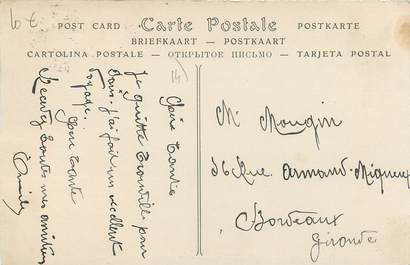 10 €
POST CARD
Carte Postale
POSTKARTE
BRIEFKAART — POSTKAART
CARTOLINA POSTALE — ОТКРЫТОЕ ПИСЬМО — TARJETA POSTAL
14
Chère Tante
Je quitte Trouville pour
Paris. J'ai fait un excellent
voyage.
Bon
Recevez toutes mes amitiés
Mr Mougin
36 Rue Armand-Miqueu
Bordeaux
Gironde